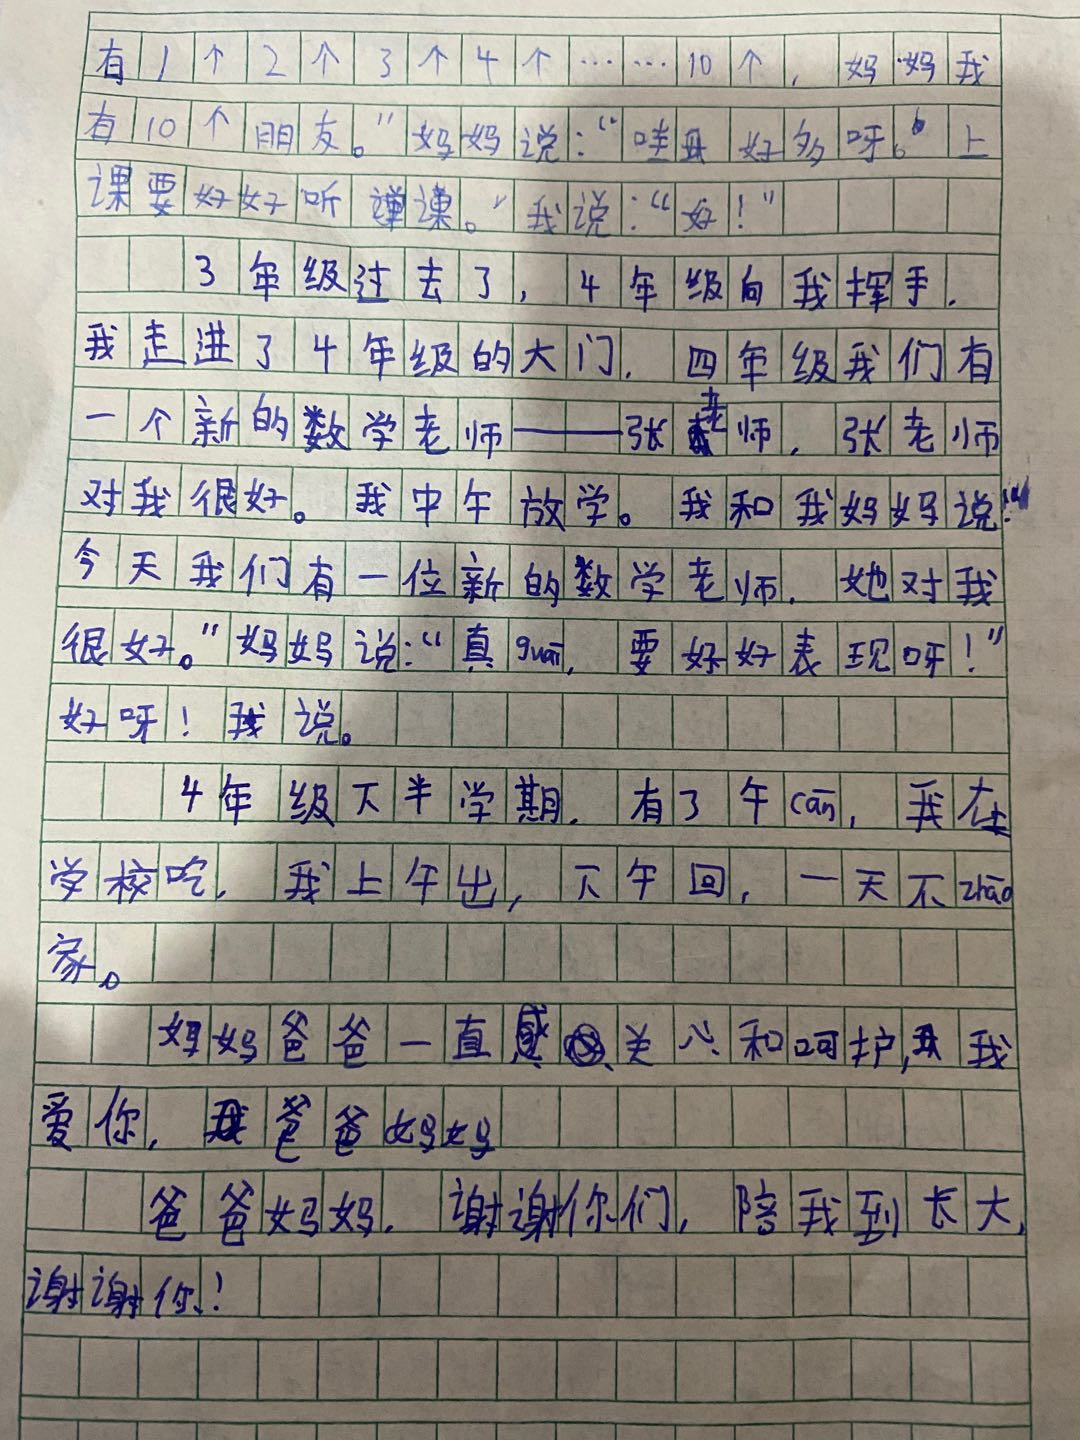 有1个2个3个4个……10个，妈妈我
有10个朋友。”妈妈说：“哇 好多呀。上
课要好好听课。”我说：“好！”
3年级过去了，4年级向我挥手.
我走进了4年级的大门. 四年级我们有
一个新的数学老师——张老师. 张老师
对我很好。我中午放学。我和我妈妈说:“
今天我们有一位新的数学老师. 她对我
很好。”妈妈说：“真guāi, 要好好表现呀！”
好呀！我说。
4年级下半学期. 有了午cān, 我在
学校吃, 我上午出, 下午回, 一天不zháo
家。
妈妈爸爸一直关心和呵护, 我
爱你, 爸爸妈妈
爸爸妈妈. 谢谢你们, 陪我到长大,
谢谢你!